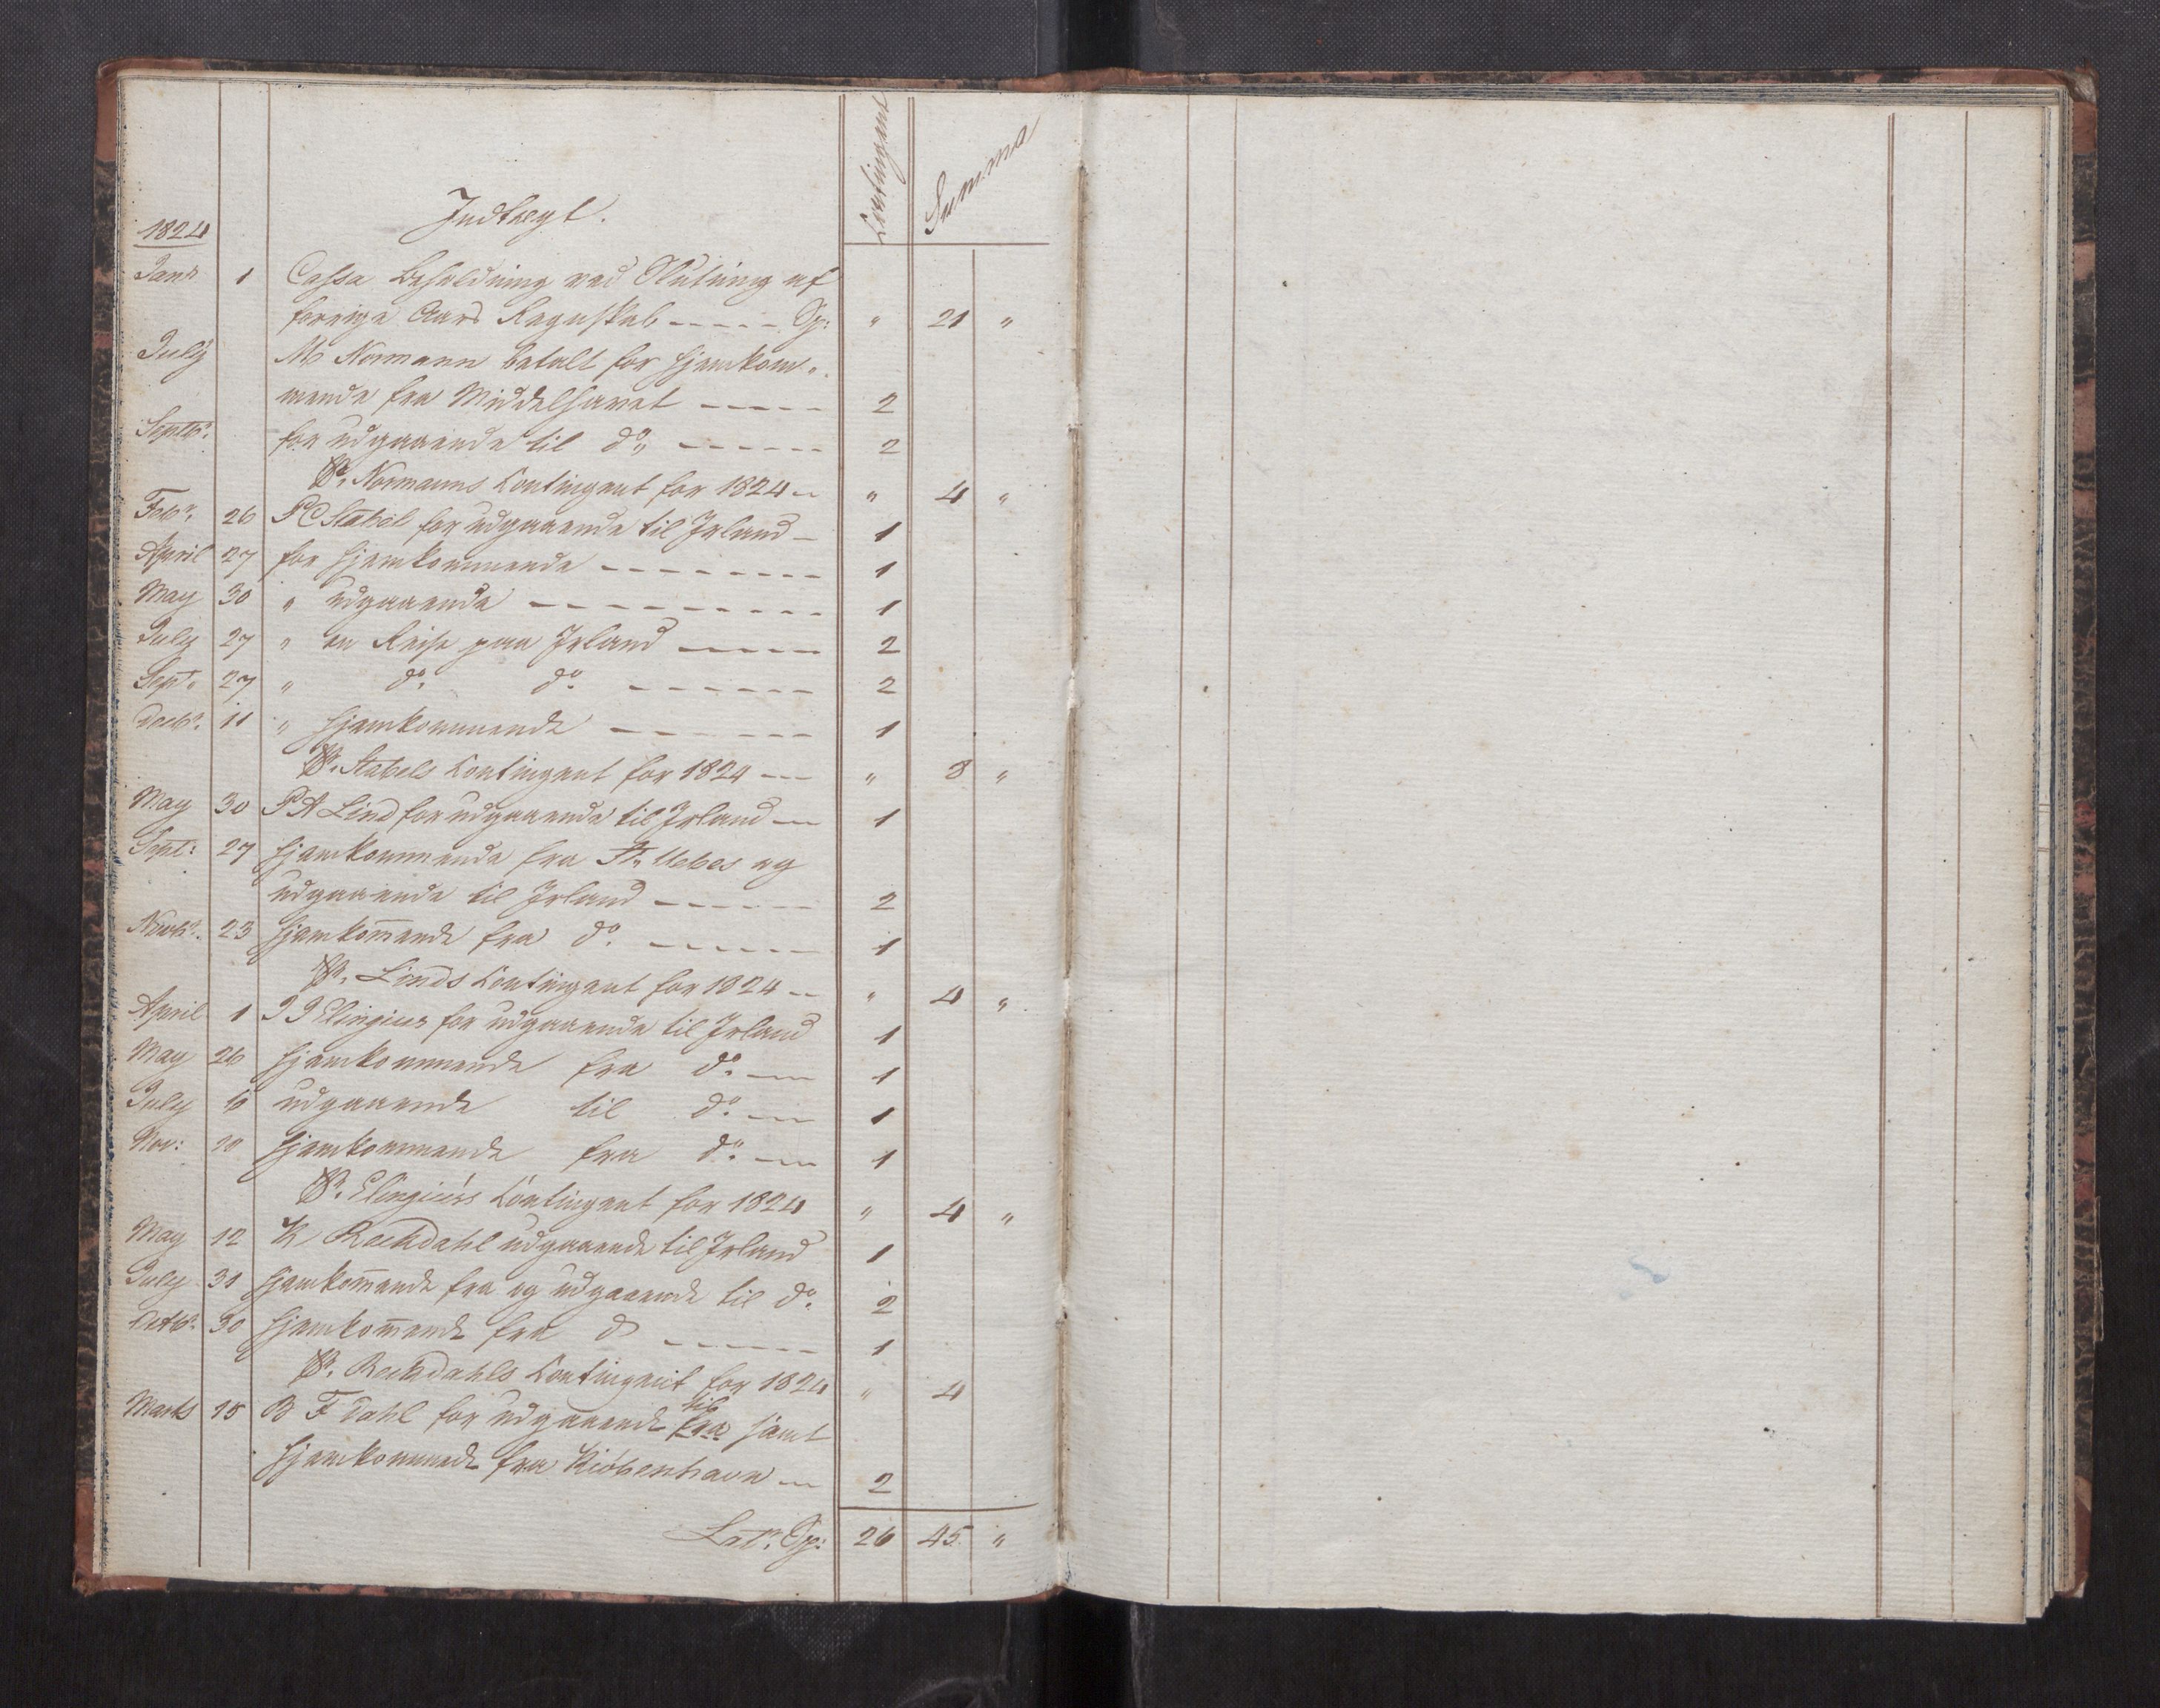 Contingent
Summa
Indtægt.
1824
Janr 1 Cassa Beholdning ved Slutning af
forrige Aars Regnskab ----- Sp: " 21 "
July M Normann betalt for hjemkom-
mende fra Middelhavet ----- 2
Septbr. for udgaaende til do ------ 2
Sr. Normanns Contingent for 1824 -- " 4 "
Febr. 26 P C Stabel for udgaaende til Irland - 1
April 27 for hjemkommende -------- 1
May 30 " udgaaende --------- 1
July 27 " en Reise paa Irland ----- 2
Sept. 27 " do. do. ------ 2
Decbr. 11 " hjemkommende ------- 1
Sr. Stabels Contingent for 1824 --- " 8 "
May 30 P A Lind for udgaaende til Irland -- 1
Sept: 27 hjemkommende fra St. Uebes og
udgaaende til Irland ------ 2
Novbr. 23 hjemkom̅ende fra do. ------ 1
Sr. Linds Contingent for 1824 -- " 4 "
April 1 I I Elingius for udgaaende til Irland 1
May 26 hjemkommende fra do. -- 1
July 6 udgaaende til do. -- 1
Nov: 20 hjemkommende fra do. -- 1
Sr. Elingius's Contingent for 1824 " 4 "
May 12 K Rockdahl udgaaende til Irland 1
July 31 hjemkom̅ende fra og udgaaende til do. 2
Octbr. 30 hjemkom̅ende fra do ------ 1
Sr. Rockdahls Contingent for 1824 " 4
til
Marts 15 B F Dahl for udgaaende fra samt
hjemkommende fra Kiöbenhavn -- 2
Latr. Sp: 26 45 "